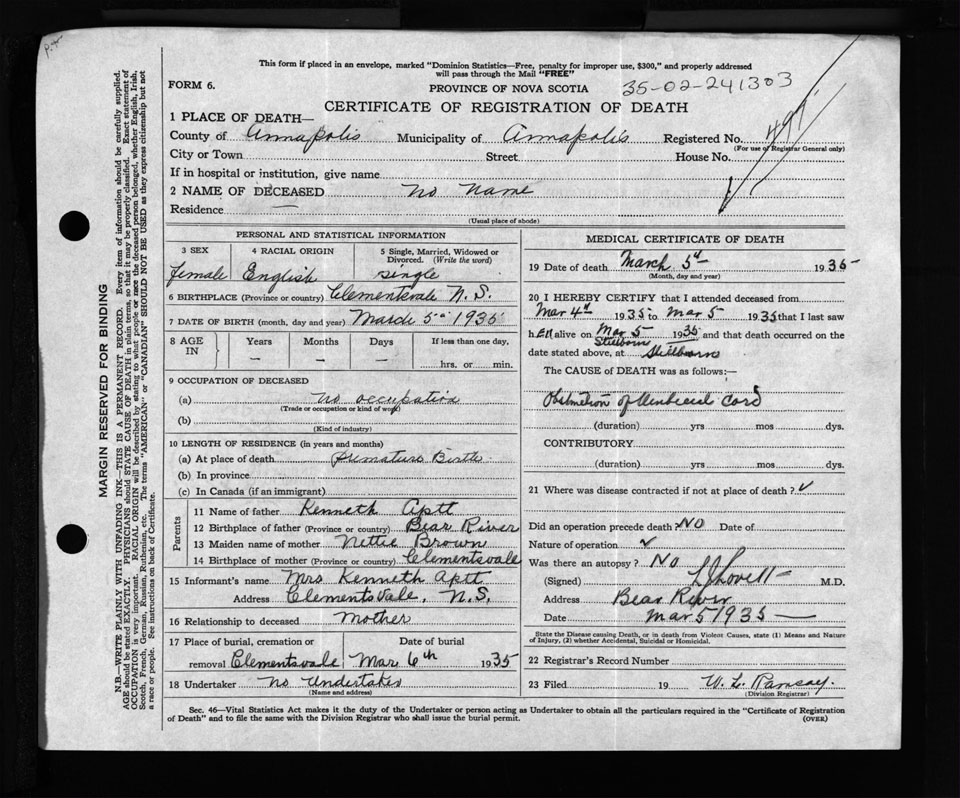 This form if placed in an envelope, marked "Dominion Statistics—Free, penalty for improper use, $300," and properly addressed
will pass through the Mail "FREE"
FORM 6.
PROVINCE OF NOVA SCOTIA
35-02-241303
CERTIFICATE OF REGISTRATION OF DEATH
1 PLACE OF DEATH—
County of Annapolis Municipality of Annapolis Registered No. 497
(For use of Registrar General only)
City or Town Street House No.
If in hospital or institution, give name
2 NAME OF DECEASED No Name
Residence —
(Usual place of abode)
PERSONAL AND STATISTICAL INFORMATION
3 SEX 4 RACIAL ORIGIN 5 Single, Married, Widowed or
Divorced. (Write the word)
female English single
6 BIRTHPLACE (Province or country) Clementsvale N.S.
7 DATE OF BIRTH (month, day and year) March 5th 1935
8 AGE IN Years Months Days If less than one day,
— — — hrs. or min.
9 OCCUPATION OF DECEASED
(a) no occupation
(Trade or occupation or kind of work)
(b)
(Kind of industry)
10 LENGTH OF RESIDENCE (in years and months)
(a) At place of death premature Birth
(b) In province
(c) In Canada (if an immigrant)
Parents
11 Name of father Kenneth Aptt
12 Birthplace of father (Province or country) Bear River
13 Maiden name of mother Nettie Brown
14 Birthplace of mother (Province or country) Clementsvale
15 Informant's name Mrs Kenneth Aptt
Address Clementsvale, N.S.
16 Relationship to deceased Mother
17 Place of burial, cremation or Date of burial
removal Clementsvale Mar 6th 1935
18 Undertaker no Undertaker
(Name and address)
MEDICAL CERTIFICATE OF DEATH
19 Date of death March 5th 1935
(Month, day and year)
20 I HEREBY CERTIFY that I attended deceased from
Mar 4th 1935 to Mar 5 1935 that I last saw
h er alive on Mar 5 1935 and that death occurred on the
Stillborn
date stated above, at Stillborn
The CAUSE OF DEATH was as follows:—
Obstruction of Umbilical Cord
(duration) yrs mos dys.
CONTRIBUTORY
(duration) yrs mos dys.
21 Where was disease contracted if not at place of death? ✓
Did an operation precede death? NO Date of
Nature of operation ✓
Was there an autopsy? No
(Signed) L J Lovett M.D.
Address Bear River
Date Mar 5 1935 —
State the Disease causing Death, or in death from Violent Causes, state (1) Means and Nature
of Injury, (2) whether Accidental, Suicidal or Homicidal.
22 Registrar's Record Number
23 Filed 19 W. L. Ramsay.
(Division Registrar)
Sec. 46—Vital Statistics Act makes it the duty of the Undertaker or person acting as Undertaker to obtain all the particulars required in the "Certificate of Registration
of Death" and to file the same with the Division Registrar who shall issue the burial permit. (OVER)
MARGIN RESERVED FOR BINDING
N.B.—WRITE PLAINLY WITH UNFADING INK—THIS IS A PERMANENT RECORD. Every item of information should be carefully supplied.
AGE should be stated EXACTLY. PHYSICIANS should STATE CAUSE OF DEATH in plain terms, so that it may be properly classified. Exact statement of
OCCUPATION is very important. RACIAL ORIGIN will be described by stating to what people or race the deceased person belonged, whether English, Irish,
Scotch, French, German, Russian, Ruthenian, etc. The terms "AMERICAN" or "CANADIAN" SHOULD NOT BE USED as they express citizenship but not
a race or people. See instructions on back of Certificate.